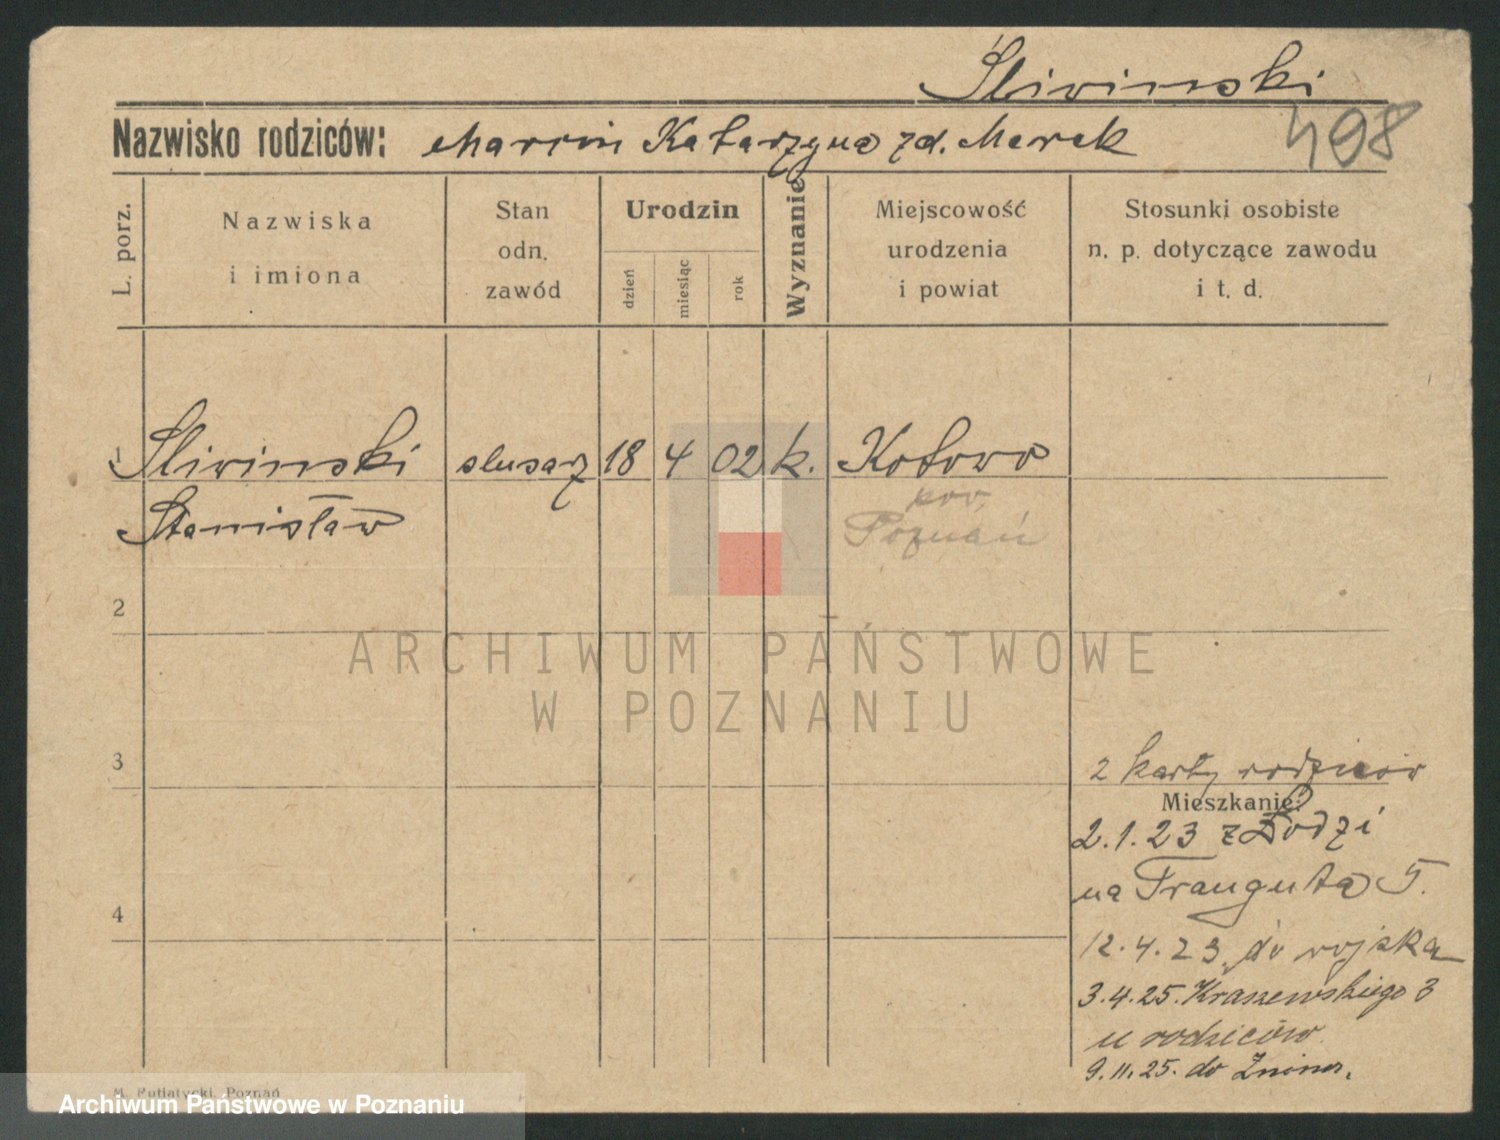 Śliwinski
498
Nazwisko rodziców: Marcin Katarzyna zd. Marek
L. porz.
Nazwiska
i imiona
Stan
odn.
zawód
Urodzin
dzień
miesiąc
rok
Wyznanie
Miejscowość
urodzenia
i powiat
Stosunki osobiste
n. p. dotyczące zawodu
i t. d.
1 Sliwinski slusarz 18 4 02 k. Kotowo
Stanisław pow.
Poznań
2
ARCHIWUM PAŃSTWOWE
W POZNANIU
3
2 karty rodziców
Mieszkanie:
2.1.23 z Łodzi
na Trauguta 5.
4
12.4.23 do wojska
3.4.25. Kraszewskiego 3
u rodziców
9.11.25. do Znina.
M. Putiatycki, Poznań
Archiwum Państwowe w Poznaniu